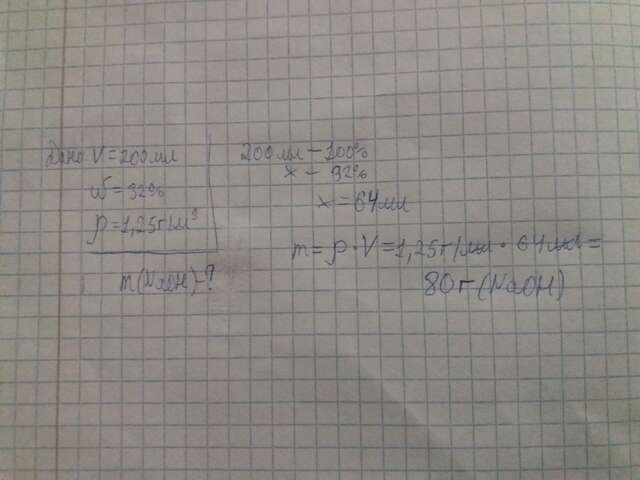 Дано V=200мл
w=32%
ρ=1,25г/см³
m(NaOH)-?
200мл - 100%
x - 32%
x=64мл
m=ρ·V=1,25г/мл·64мл=
80г(NaOH)